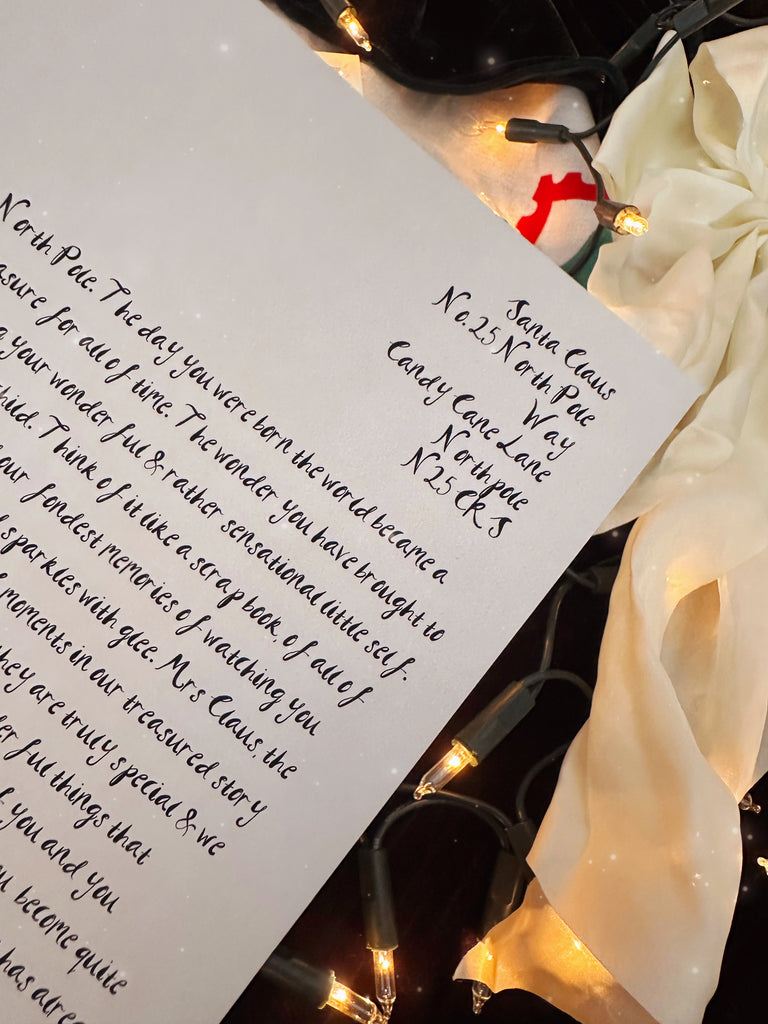 Santa Claus
No. 25 North Pole
Way
Candy Cane Lane
Northpole
N25
North Pole. The day you were born the world became a
for all of time. The wonder you have brought to
your wonderful & rather sensational little self.
Think of it like a scrap book, of all of
our fondest memories of watching you
sparkles with glee. Mrs Claus, the
moments in our treasured story
they are truly special & we
ful things that
you and you
become quite
has